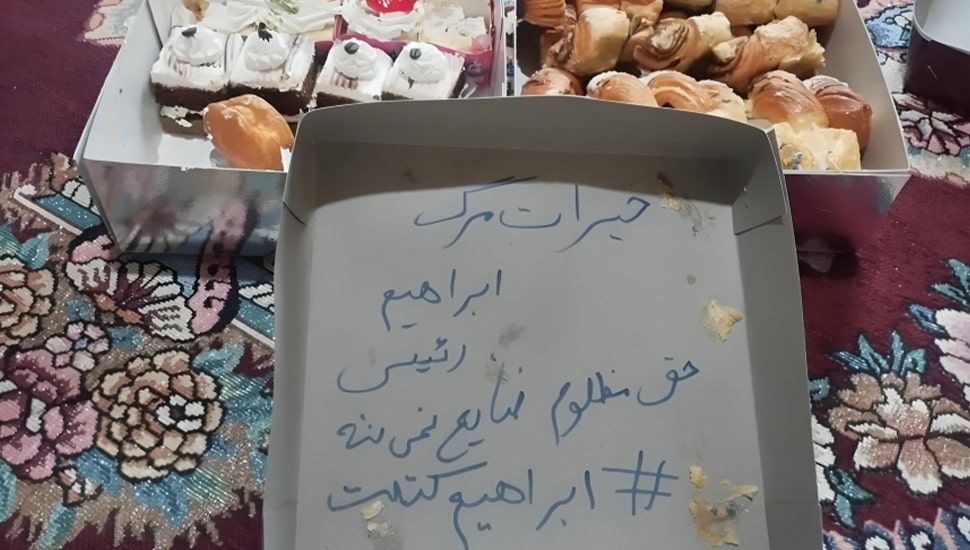 خیرات مرگ
ابراهیم
رئیس
حق مظلوم ضایع نمی‌شه
#ابراهیم کتلت